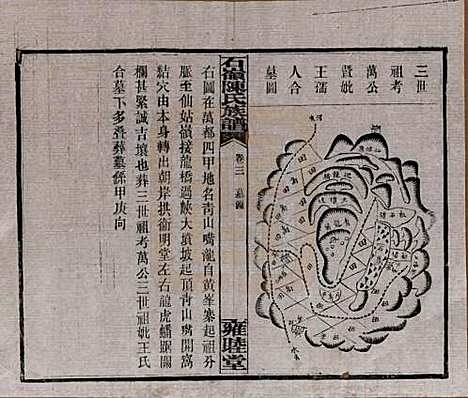 三世
祖考
萬公
暨妣
王孺
人合
墓圖
石嶺陳氏族譜
卷三 墓圖
雍睦堂
右圖在萬都四甲地名青山嘴龍自黃峯寨起祖分
脈至仙姑嶺接龍橋過峽大墳坡起頂青山嘴開窩
結穴由本身轉出朝岸拱衛明堂左右龍虎蟠踞關
欄甚緊誠吉壤也葬三世祖考萬公三世祖妣王氏
合墓下多疊葬墓係甲庚向